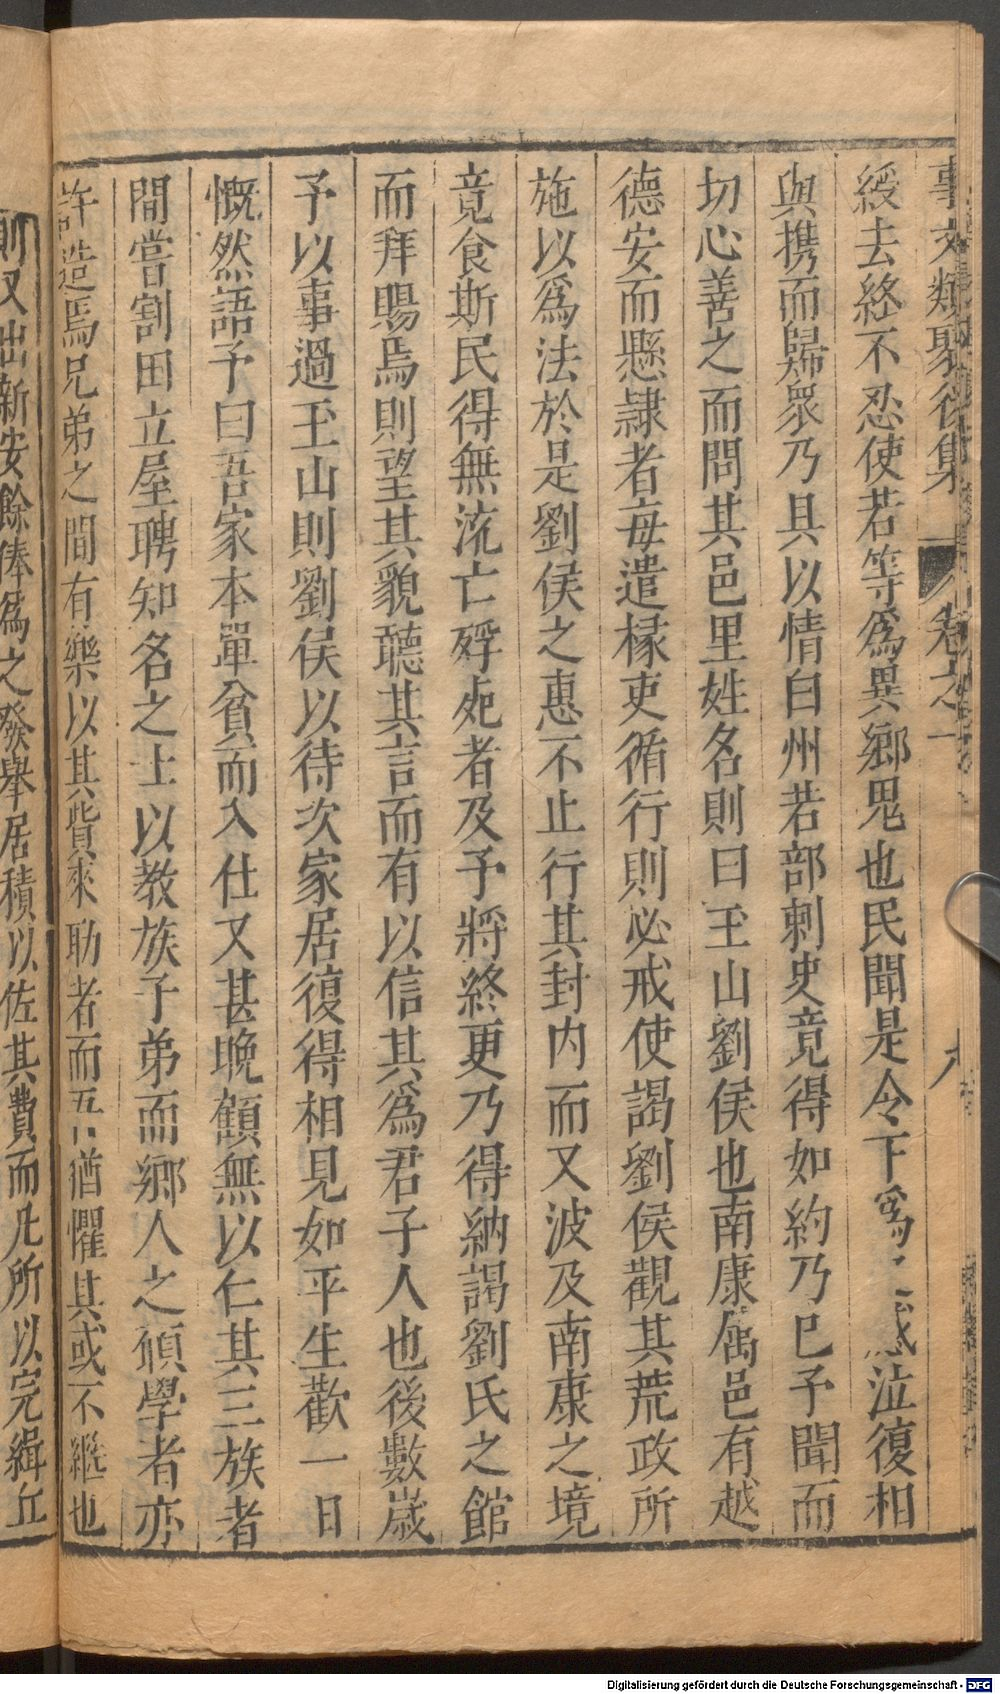 事文類聚後集 卷之一
綬去終不忍使若等爲異鄉鬼也民聞是令下爲感泣復相
與携而歸衆乃具以情白州若部刺史竟得如約乃已予聞而
切心善之而問其邑里姓名則曰玉山劉侯也南康属邑有越
德安而懸隷者每遣椽吏循行則必戒使謁劉侯觀其荒政所
施以爲法於是劉侯之惠不止行其封内而又波及南康之境
竟食斯民得無流亡殍死者及予將終更乃得納謁劉氏之館
而拜賜焉則望其貌聽其言而有以信其爲君子人也後數歲
予以事過玉山則劉侯以待次家居復得相見如平生歡一日
慨然語予曰吾家本單貧而入仕又甚晚顧無以仁其三族者
間嘗割田立屋聘知名之士以教族子弟而鄉人之願學者亦
許造焉兄弟之間有樂以其貲來助者而吾猶懼其或不繼也
則又出新安餘俸爲之發舉居積以佐其費而凡所以完緝丘
Digitalisierung gefördert durch die Deutsche Forschungsgemeinschaft - DFG